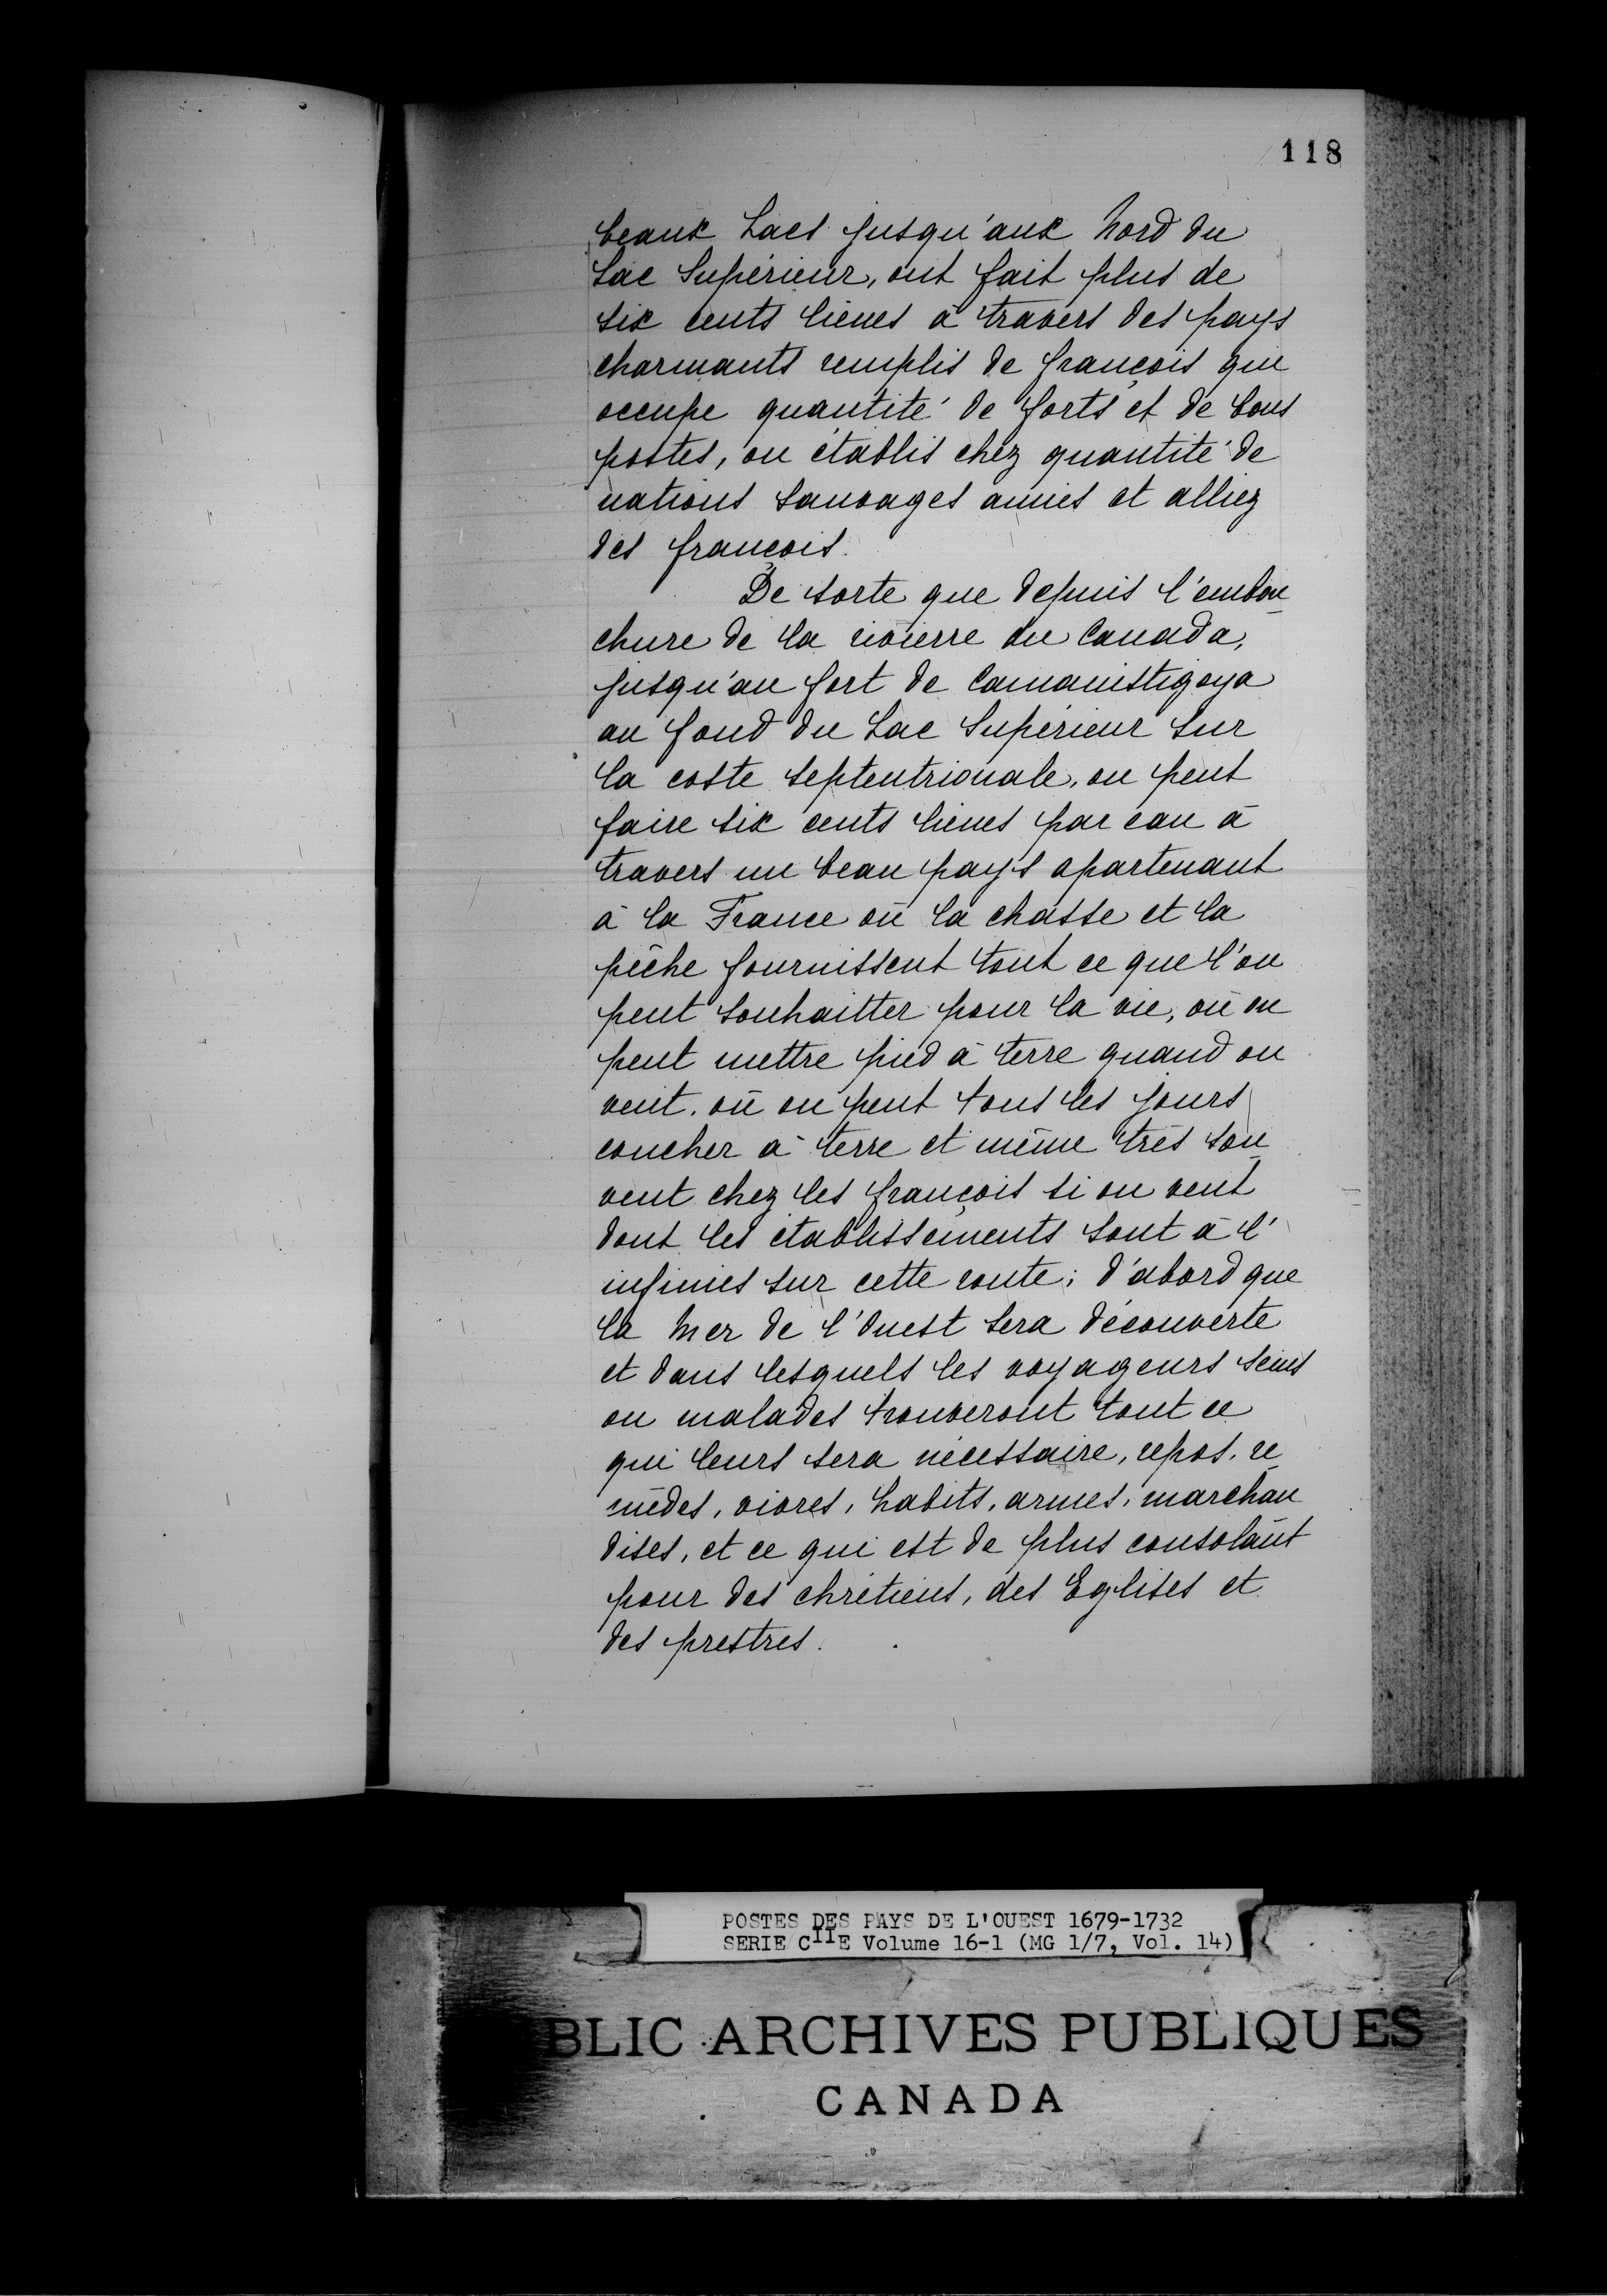 118
beaux Lacs jusqu'aux Nord du
Lac Supérieur, ont fait plus de
six cents lieues à travers des pays
charmants remplis de françois qui
occupe quantité de forts et de bons
postes, ou établis chez quantité de
nations sauvages amies et alliez
des françois.
De sorte que depuis l'embou
chure de la rivierre du Canada,
jusqu'au fort de Camanistigoya
au fond du Lac Supérieur sur
la coste septentrionale, on peut
faire six cents lieues par eau à
travers un beau pays apartenant
à la France où la chasse et la
pêche fournissent tout ce que l'on
peut souhaitter pour la vie, où on
peut mettre pied à terre quand on
veut, où on peut tous les jours
coucher à terre et même très sou
vent chez les françois si on veut
dont les établissements sont à l'
infinies sur cette route; d'abord que
la Mer de l'Ouest sera découverte
et dans lesquels les voyageurs seins
ou malades trouveront tout ce
qui leurs sera nécessaire, repos, re
mèdes, vivres, habits, armes, marchan
dises, et ce qui est de plus consolant
pour des chrétiens, des Eglises et
des prestres.
POSTES DES PAYS DE L'OUEST 1679-1732
SERIE CIIE Volume 16-1 (MG 1/7, Vol. 14)
BLIC ARCHIVES PUBLIQUES
CANADA